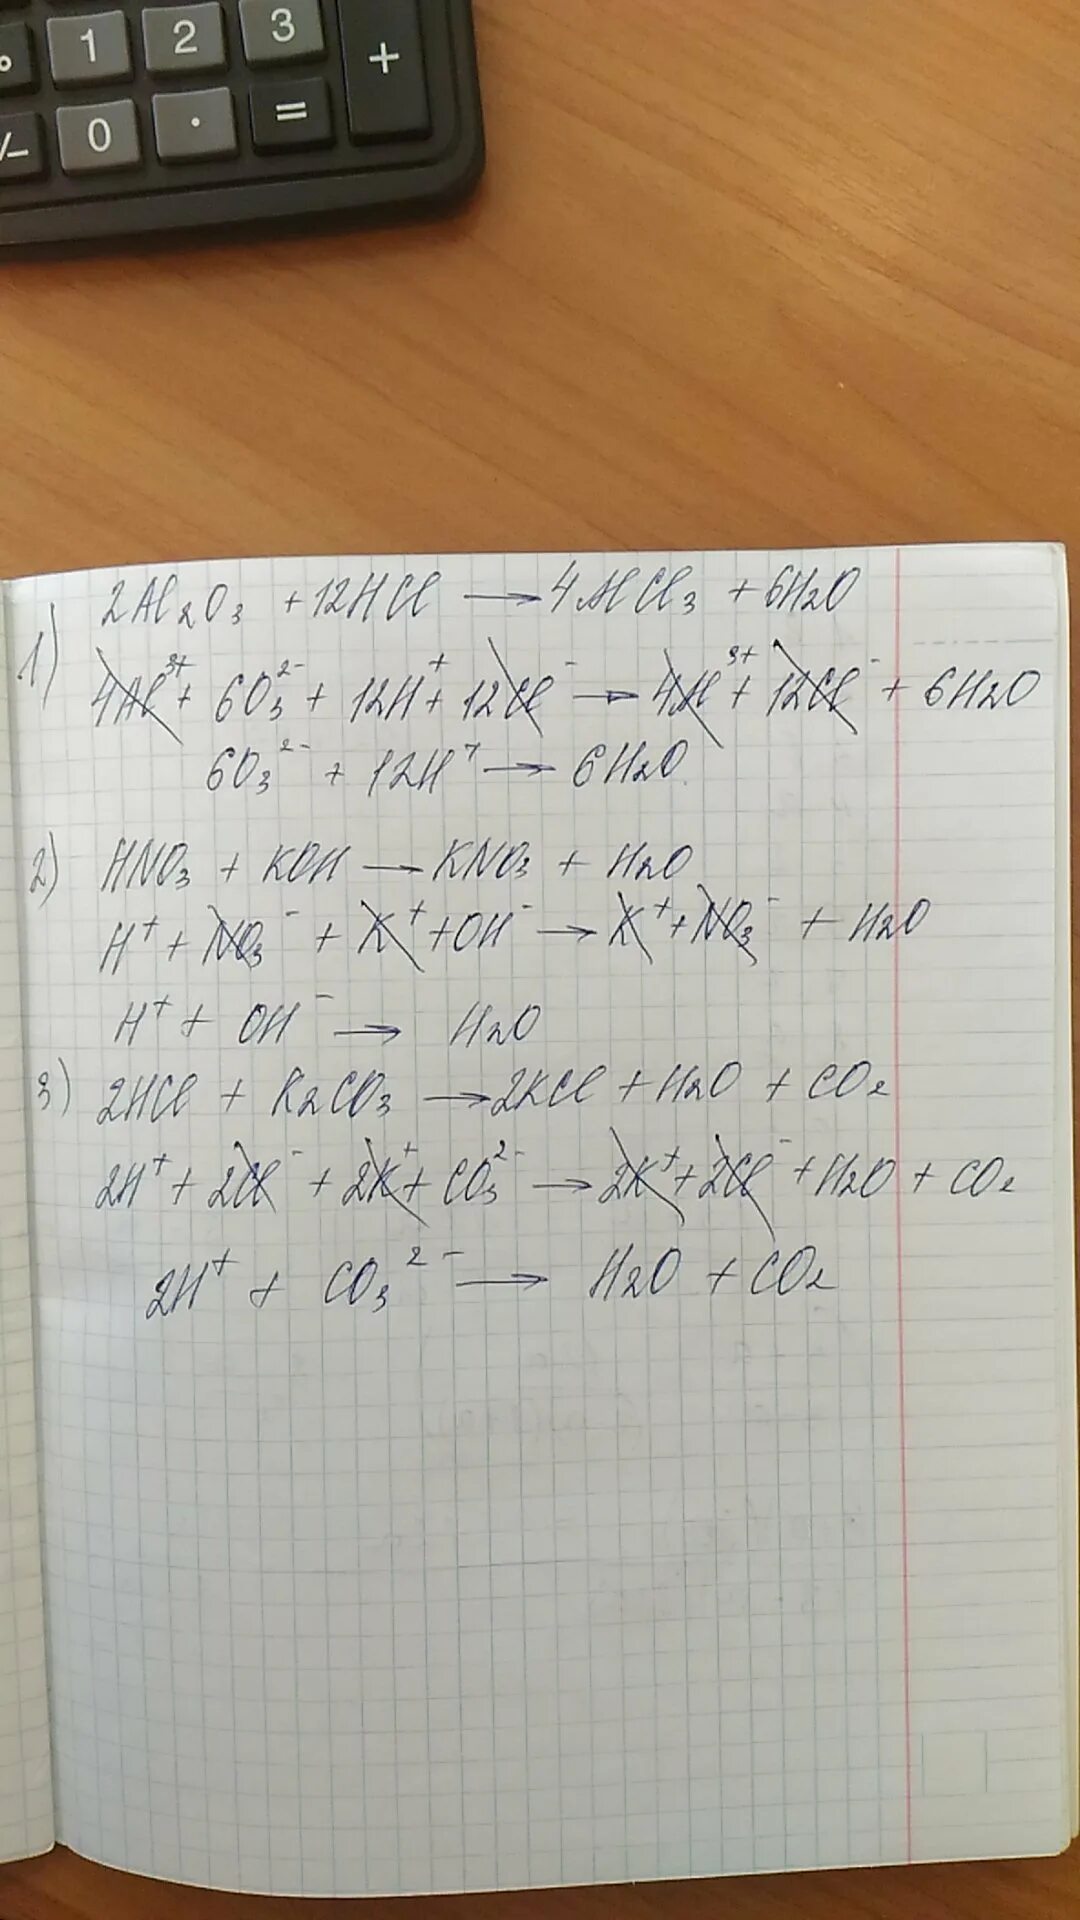 1 2 3 +
0 . =
1) 2Al₂O₃ + 12HCl → 4AlCl₃ + 6H₂O
4Al³⁺ + 6O₃²⁻ + 12H⁺ + 12Cl⁻ → 4Al³⁺ + 12Cl⁻ + 6H₂O
6O₃²⁻ + 12H⁺ → 6H₂O
2) HNO₃ + KOH → KNO₃ + H₂O
H⁺ + NO₃⁻ + K⁺ + OH⁻ → K⁺ + NO₃⁻ + H₂O
H⁺ + OH⁻ → H₂O
3) 2HCl + K₂CO₃ → 2KCl + H₂O + CO₂
2H⁺ + 2Cl⁻ + 2K⁺ + CO₃²⁻ → 2K⁺ + 2Cl⁻ + H₂O + CO₂
2H⁺ + CO₃²⁻ → H₂O + CO₂